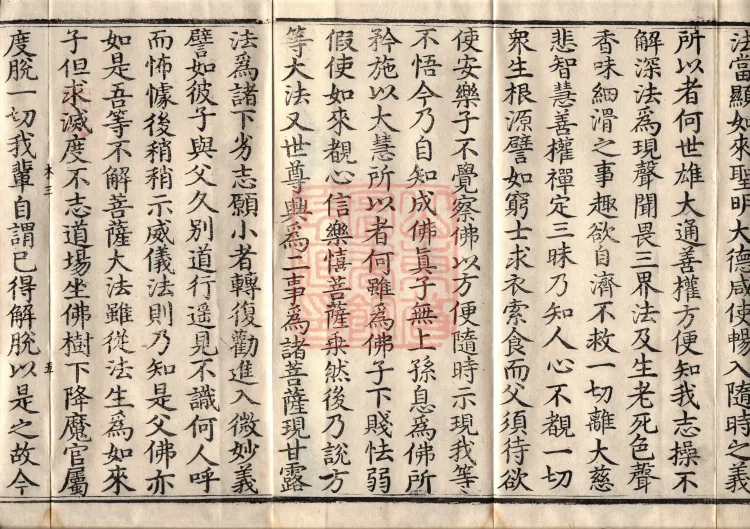 法當顯如來聖明大德咸使暢入隨時之義
所以者何世雄大通善權方便知我志操不
解深法爲現聲聞畏三界法及生老死色聲
香味細滑之事趣欲自濟不救一切離大慈
悲智慧善權禪定三昧乃知人心不覩一切
衆生根源譬如窮士求衣索食而父須待欲
使安樂子不覺察佛以方便隨時示現我等
不悟今乃自知成佛真子無上孫息爲佛所
矜施以大慧所以者何雖爲佛子下賤怯弱
假使如來覩心信樂憘菩薩乘然後乃說方
等大法又世尊興爲二事爲諸菩薩現甘露
法爲諸下劣志願小者轉復勸進入微妙義
譬如彼子與父久別道行遥見不識何人呼
而怖懅後稍稍示威儀法則乃知是父佛亦
如是吾等不解菩薩大法雖從法生爲如來
子但求滅度不志道場坐佛樹下降魔官屬
三 五
度脫一切我輩自謂已得解脫以是之故今